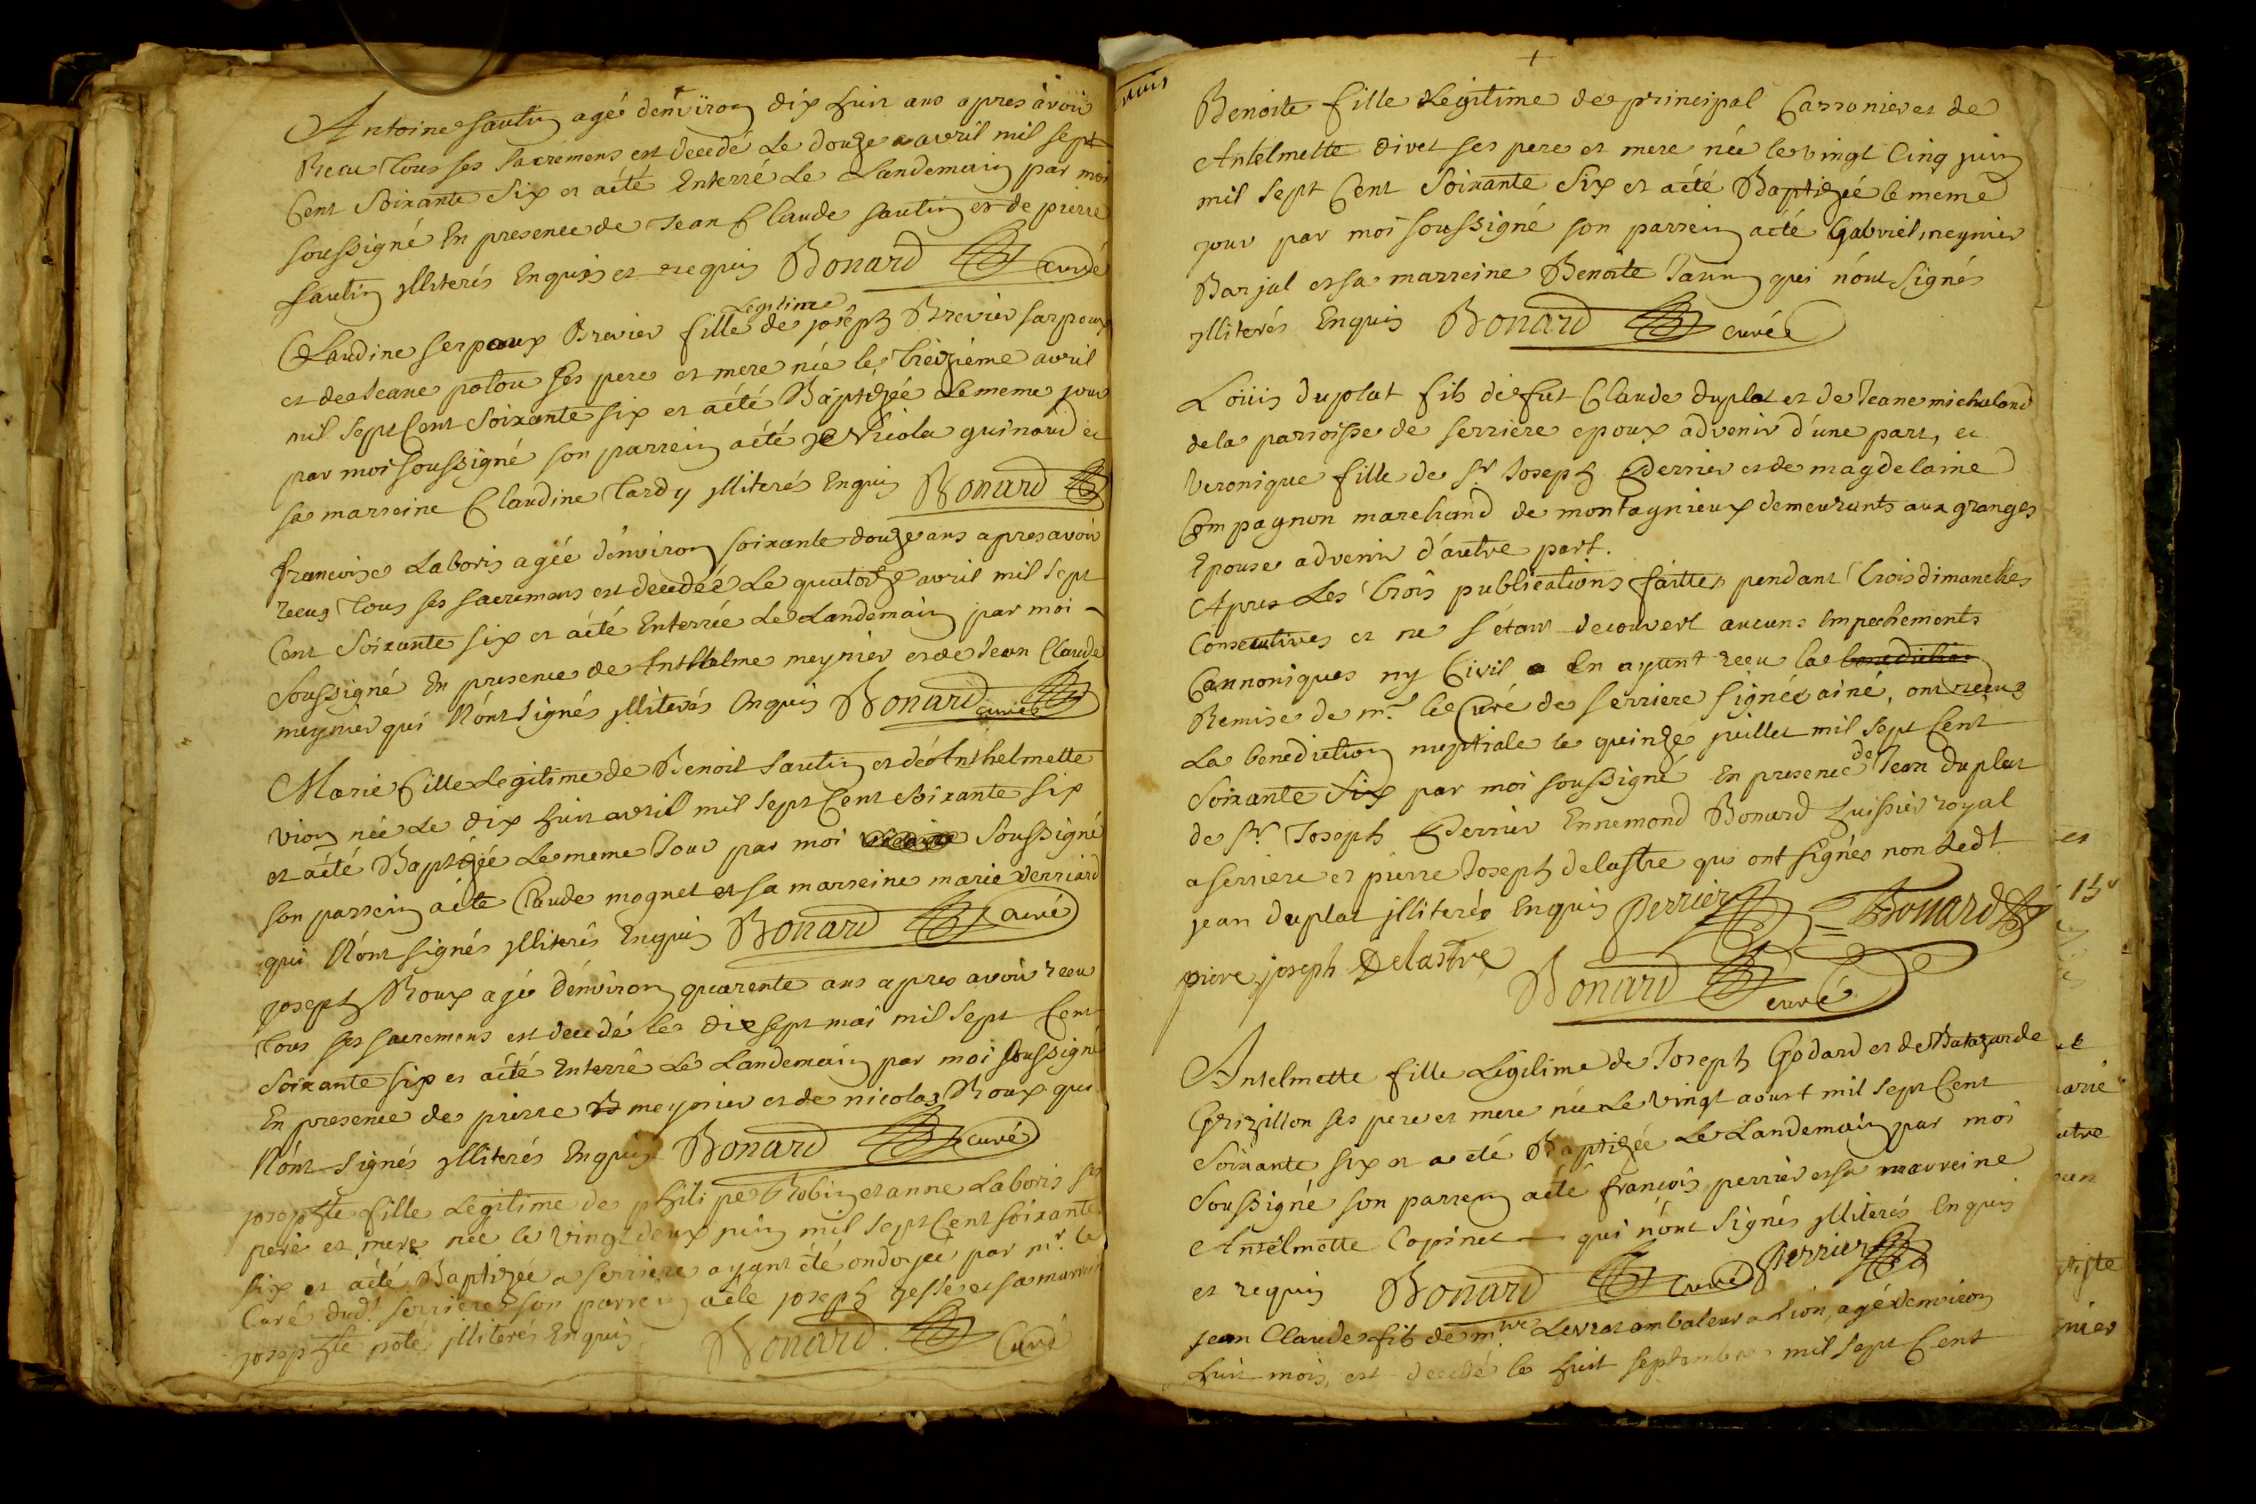 Antoine sautin agé d'environ dix huit ans apres avoir
Receu tous ses sacremens est decedé Le douze avril mil sept
Cent Soixante Six et a été Enterré Le Landemain par moi
soussigné En presence de Jean Claude sautin et de pierre
sautin ylliterés Enquis et requis Bonard curé
Claudine serpoux Brevier fille Legitime de joseph Brevier sarpoux
et de Jeane potou ses pere et mere née le treizième avril
mil sept Cent Soixante six et a été Baptizée Le meme jour
par moi soussigné son parrein a été Nicola guinard et
sa marreine Claudine tardy ylliterés Enquis Bonard
francoise Laboris agée d'environ soixante douze ans apres avoir
receus tous ses sacremens est decedée Le quatorze avril mil sept
Cent Soixante six et a été Enterrée Le Landemain par moi
Soussigné En presence de Anthelme meynier et de Jean Claude
meynier qui N'ont signés ylliterés Enquis Bonard curé
Marie fille Legitime de Benoit sautin et de Anthelmette
vion née Le dix huit avril mil sept Cent Soixante six
et a été Baptizée Le meme Jour par moi Soussigné
son parrein a été Claude mognet et sa marreine marie verriard
qui N'ont signés ylliterés Enquis Bonard curé
joseph Roux agé d'environ quarente ans apres avoir receu
tous ses sacremens est decedé le dix sept mai mil sept Cent
Soixante six et a été Enterré Le Landemain par moi soussigné
En presence de pierre meynier et de nicolas Roux qui
N'ont signés ylliterés Enquis Bonard curé
josephte fille Legitime de philipe Robin et anne Laboris ses
pere et mere née le vingt deux juin mil sept Cent soixante
six et a été Baptizée a serriere ayant été ondoyée par mr. le
Curé dud. serriere son parrein a été joseph gesse et sa marreine
josephte poté ylliterés Enquis Bonard Curé
Benoite fille Legitime de principal Carronier et de
Antelmette divet ses pere et mere née le vingt Cinq juin
mil sept Cent Soixante Six et a été Baptizée le meme
jour par moi soussigné son parrein a été Gabriel meynier
Barjal et sa marreine Benoite Janin qui n'ont Signés
ylliterés Enquis Bonard curé
Loüis duplat fils de fut Claude duplat et de Jeane michaland
de la parroisse de serriere epoux advenir d'une part, et
Veronique fille de Sr. Joseph Perrier et de magdelaine
Compagnon marchand de montagnieux demeurants aux granges
Epouse advenir d'autre part.
Apres Les trois publications faittes pendant trois dimanches
Consecutives et ne s'étant decouvert aucuns Empechements
Cannoniques ny Civil En ayant receu la benediction
Remise de mr. le Curé de serriere signée ainé, ont receus
La benediction nuptiale le quinze juillet mil sept Cent
Soixante six par moi soussigné En presence de Jean duplat
de Sr. Joseph Perrier Ennemond Bonard huissier royal
a serriere et pierre Joseph delastre qui ont signés non ledt
jean duplat ylliteré Enquis Perrier Bonard
piere joseph Delastre Bonard curé
Antelmette fille Légitime de Joseph Godard et de Batazarde
Grizillon ses pere et mere née Le vingt aoust mil sept Cent
Soixante six et a été Baptizée Le Landemain par moi
Soussigné son parrein a été francois perrier et sa marreine
Antelmette Copinet qui n'ont Signés ylliterés Enquis
et requis Bonard curé Perrier
jean Claude fils de mtre Levrat ambaleur a Lion, agé d'environ
huit mois, est decedé le huit septembre mil sept Cent